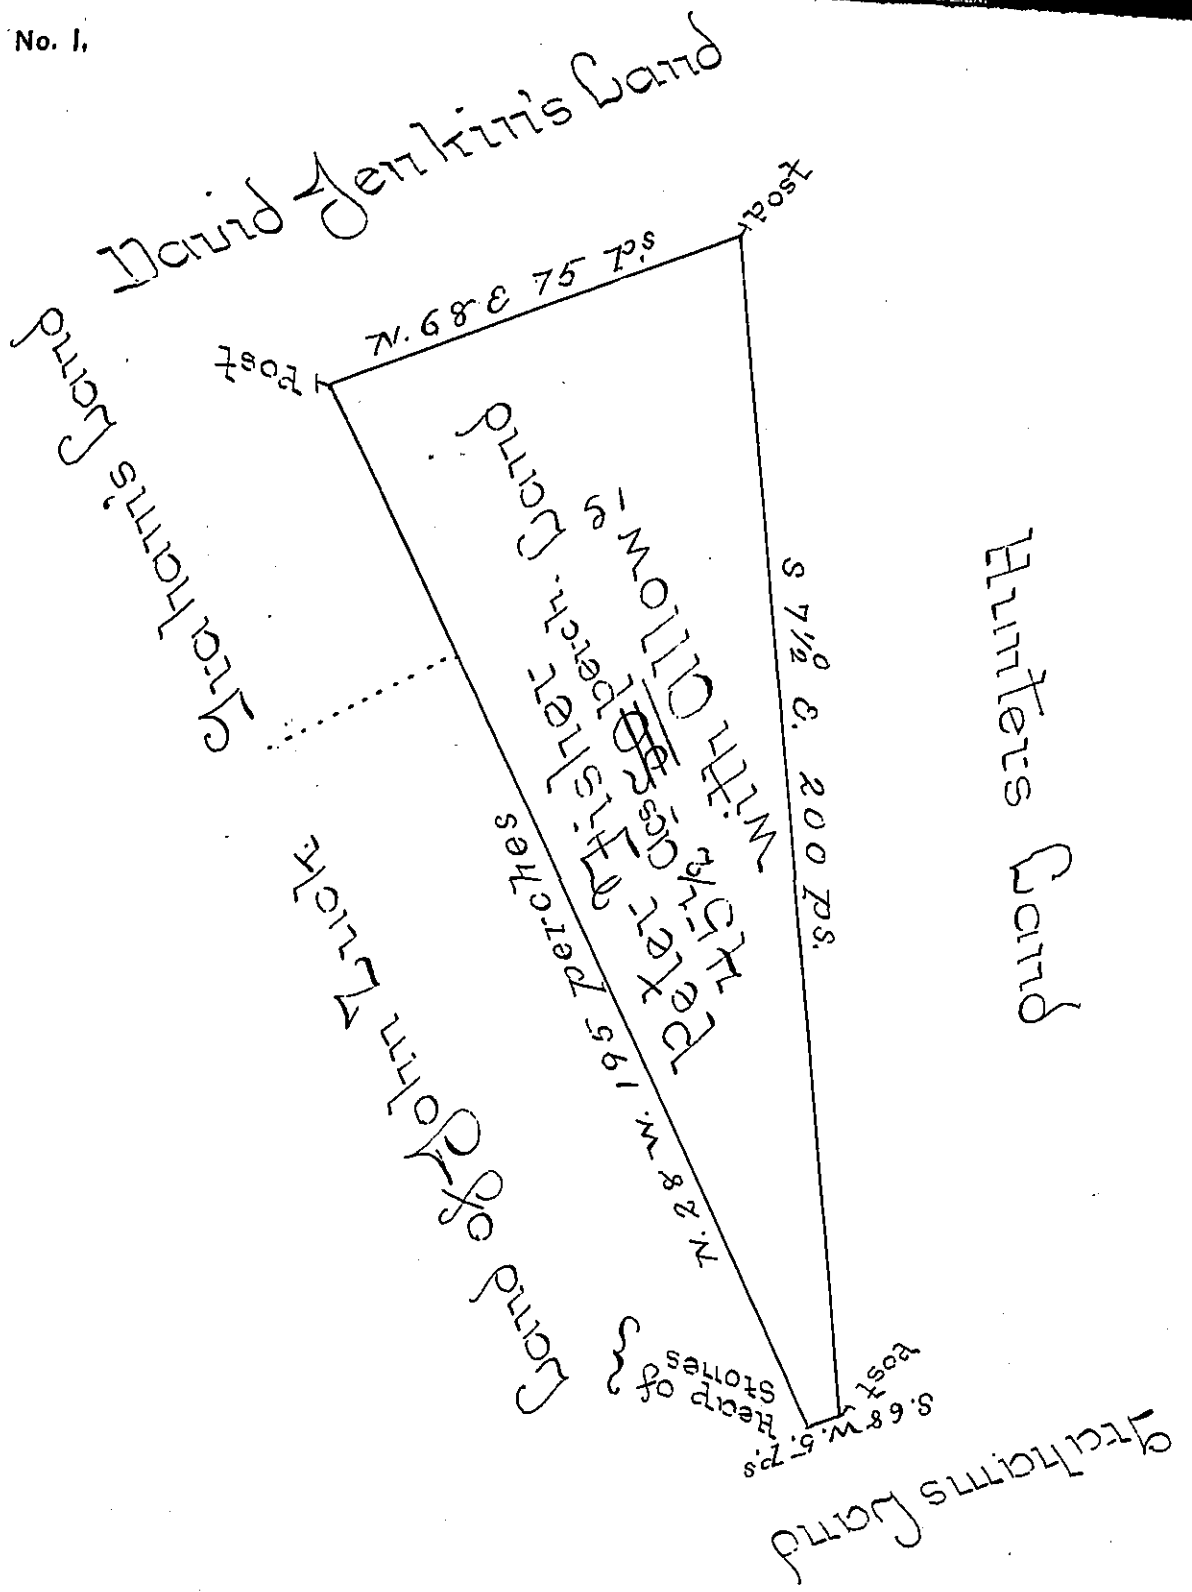 No. 1.
David Jenkin's Land
post
N. 68 E 75 P.s
Post
Graham's Land
Peter Fisher
45 1/2 acs perch. Land
with Allow-e
S 7 1/2° E. 200 Ps.
Hunters Land
N. 28 W. 195 Perches
Land of John
Heap of
Stones
post
S. 68 W. 5. P.s
Grahams Land